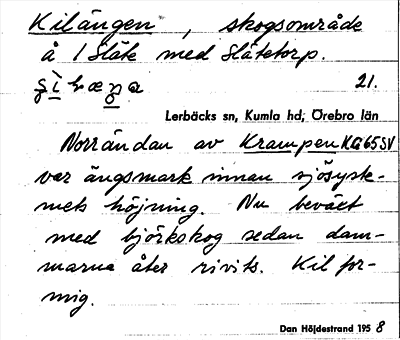 Kilängen, skogsområde
å 1 Släte med Slätetorp.
21.
Lerbäcks sn, Kumla hd, Örebro län
Norrändan av Krampen KG65SV
var ängsmark innan sjösyste-
mets höjning. Nu beväxt
med björkskog sedan dam-
marna åter rivits. Kil for-
mig.
Dan Höjdestrand 1958